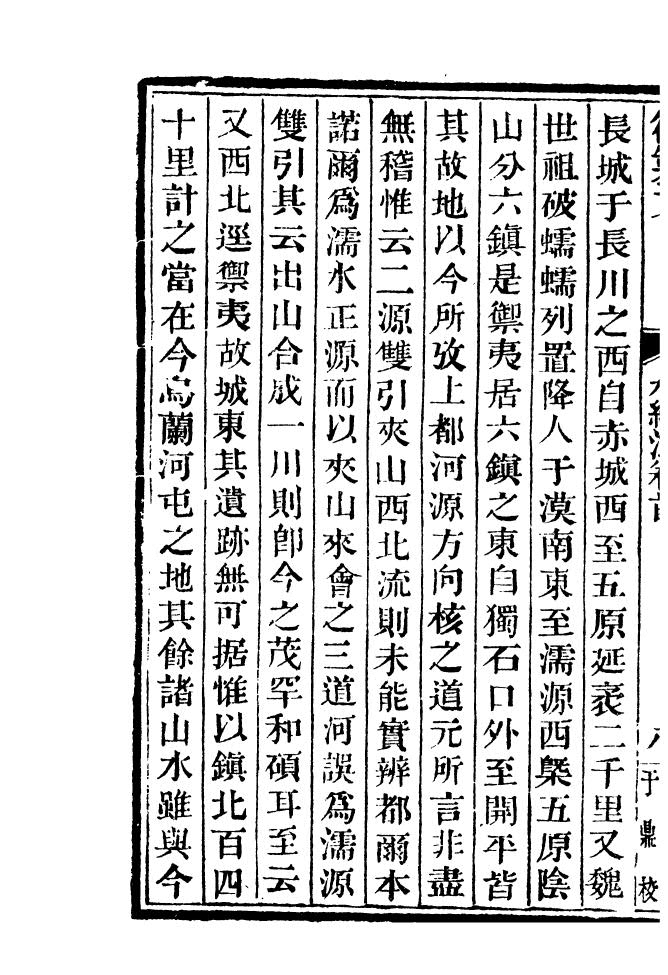 水經注卷首
八
于鼎校
長城于長川之西自赤城西至五原延袤二千里又魏
世祖破蠕蠕列置降人于漠南東至濡源西槩五原陰
山分六鎮是禦夷居六鎮之東自獨石口外至開平皆
其故地以今所攷上都河源方向核之道元所言非盡
無稽惟云二源雙引夾山西北流則未能實辨都爾本
諾爾爲濡水正源而以夾山來會之三道河誤爲濡源
雙引其云出山合成一川則卽今之茂罕和碩耳至云
又西北逕禦夷故城東其遺跡無可据惟以鎮北百四
十里計之當在今烏蘭河屯之地其餘諸山水雖與今